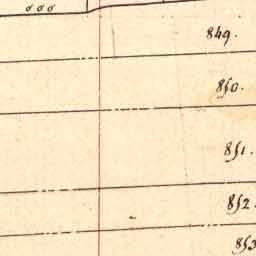 849.
850.
851.
852.
853